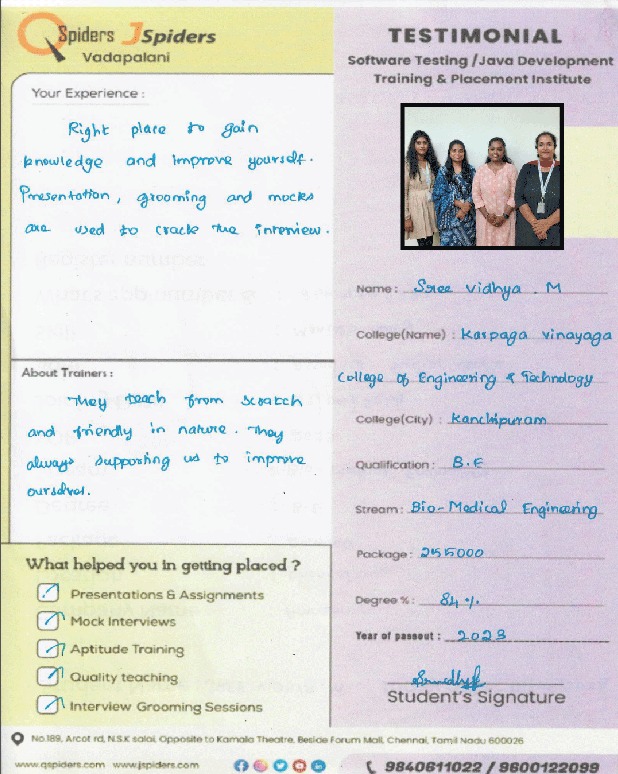 QSpiders JSpiders
Vadapalani
Your Experience :
Right place to gain
knowledge and improve yourself.
Presentation, grooming and mocks
are used to crack the interview.
About Trainers :
They teach from scratch
and friendly in nature. They
always supporting us to improve
ourselves.
What helped you in getting placed ?
Presentations & Assignments
Mock Interviews
Aptitude Training
Quality teaching
Interview Grooming Sessions
TESTIMONIAL
Software Testing /Java Development
Training & Placement Institute
Name : Sree vidhya . M
College(Name) : Karpaga vinayaga
College of Engineering & Technology
College(City) : Kanchipuram
Qualification : B.E
Stream : Bio-Medical Engineering
Package : 255000
Degree % : 84 %
Year of passout : 2023
Student's Signature
No.189, Arcot rd, N.S.K salai, Opposite to Kamala Theatre, Beside Forum Mall, Chennai, Tamil Nadu 600026
www.qspiders.com www.jspiders.com
9840611022 / 9600122099